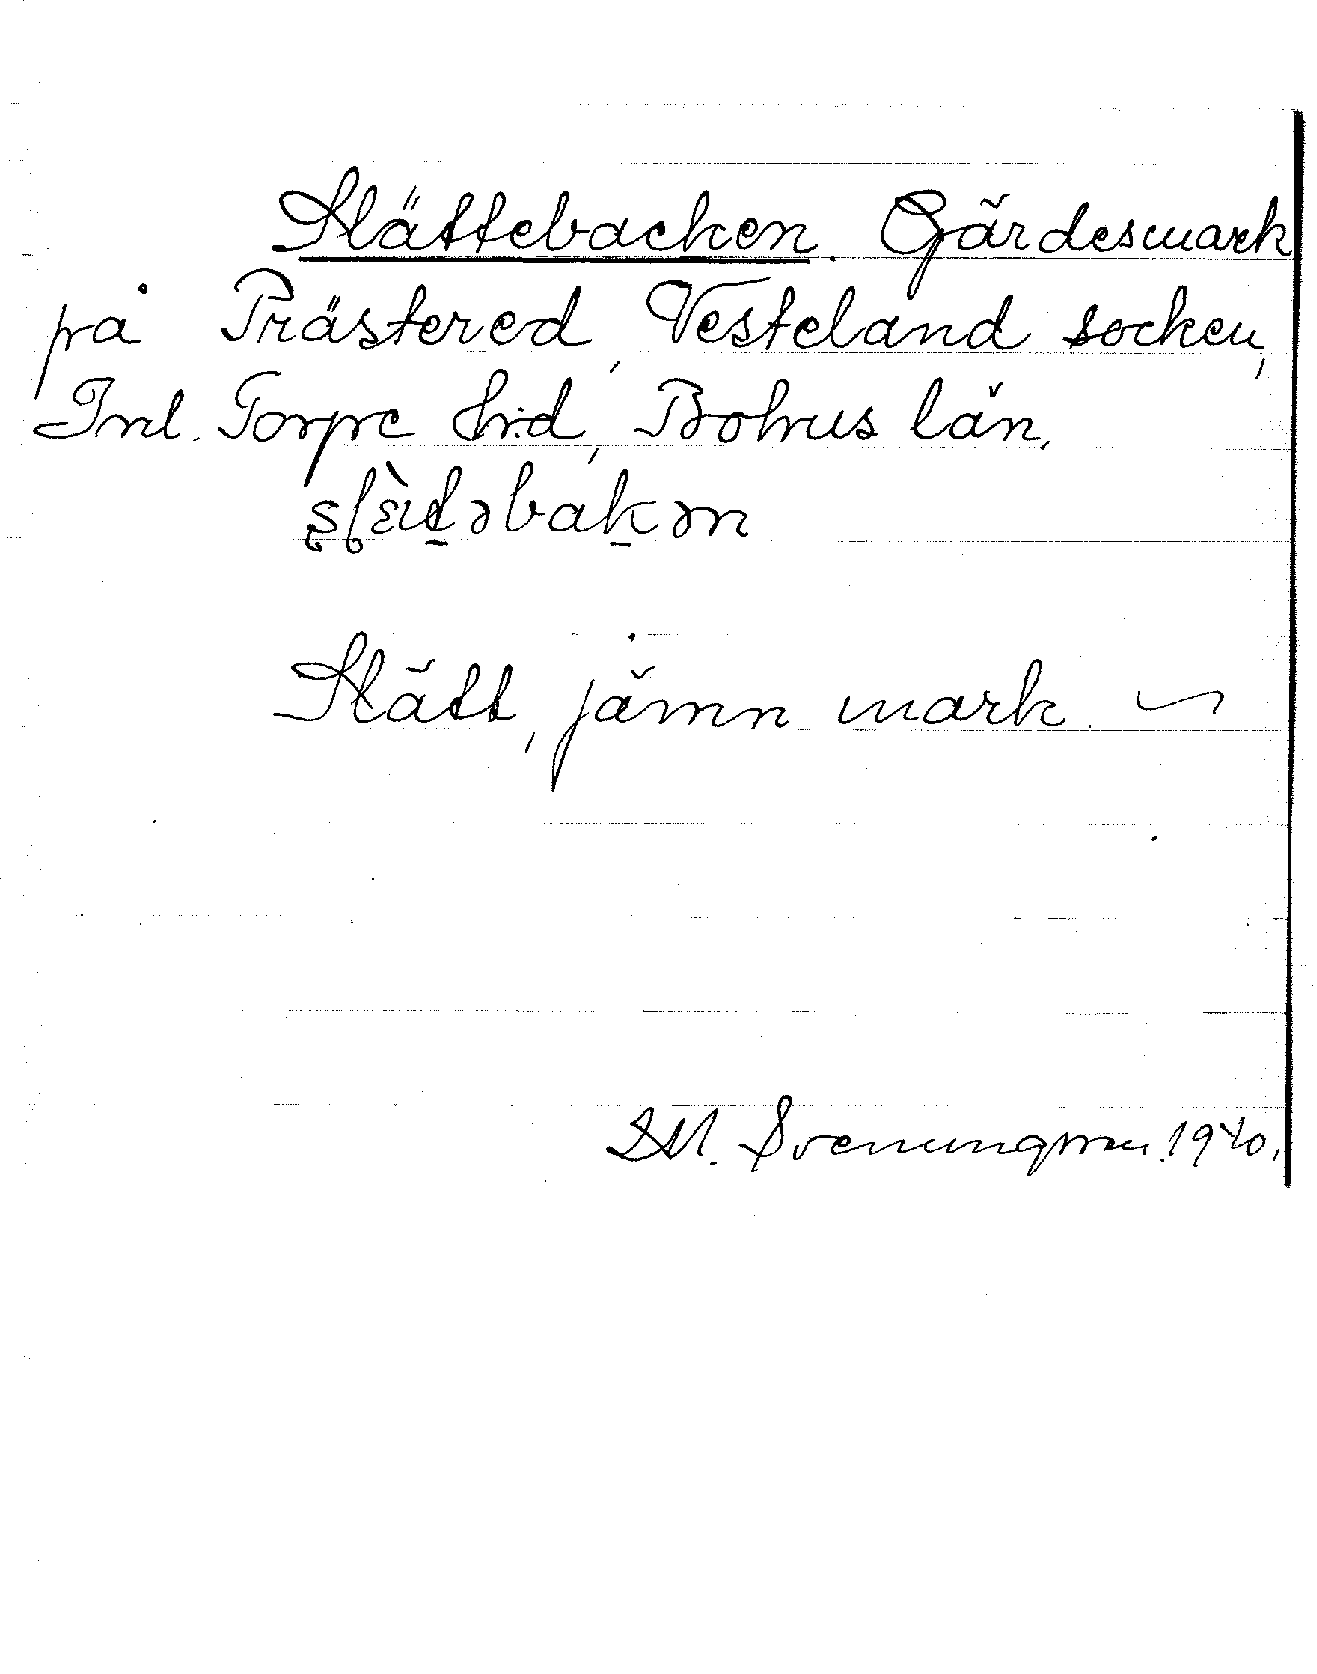 Slättebacken. Gärdesmark
på Prästered, Vesteland socken,
Inl. Torpe hrd, Bohus län.
Slätt, jämn mark. ~
D.M. Svenungsson. 1940.